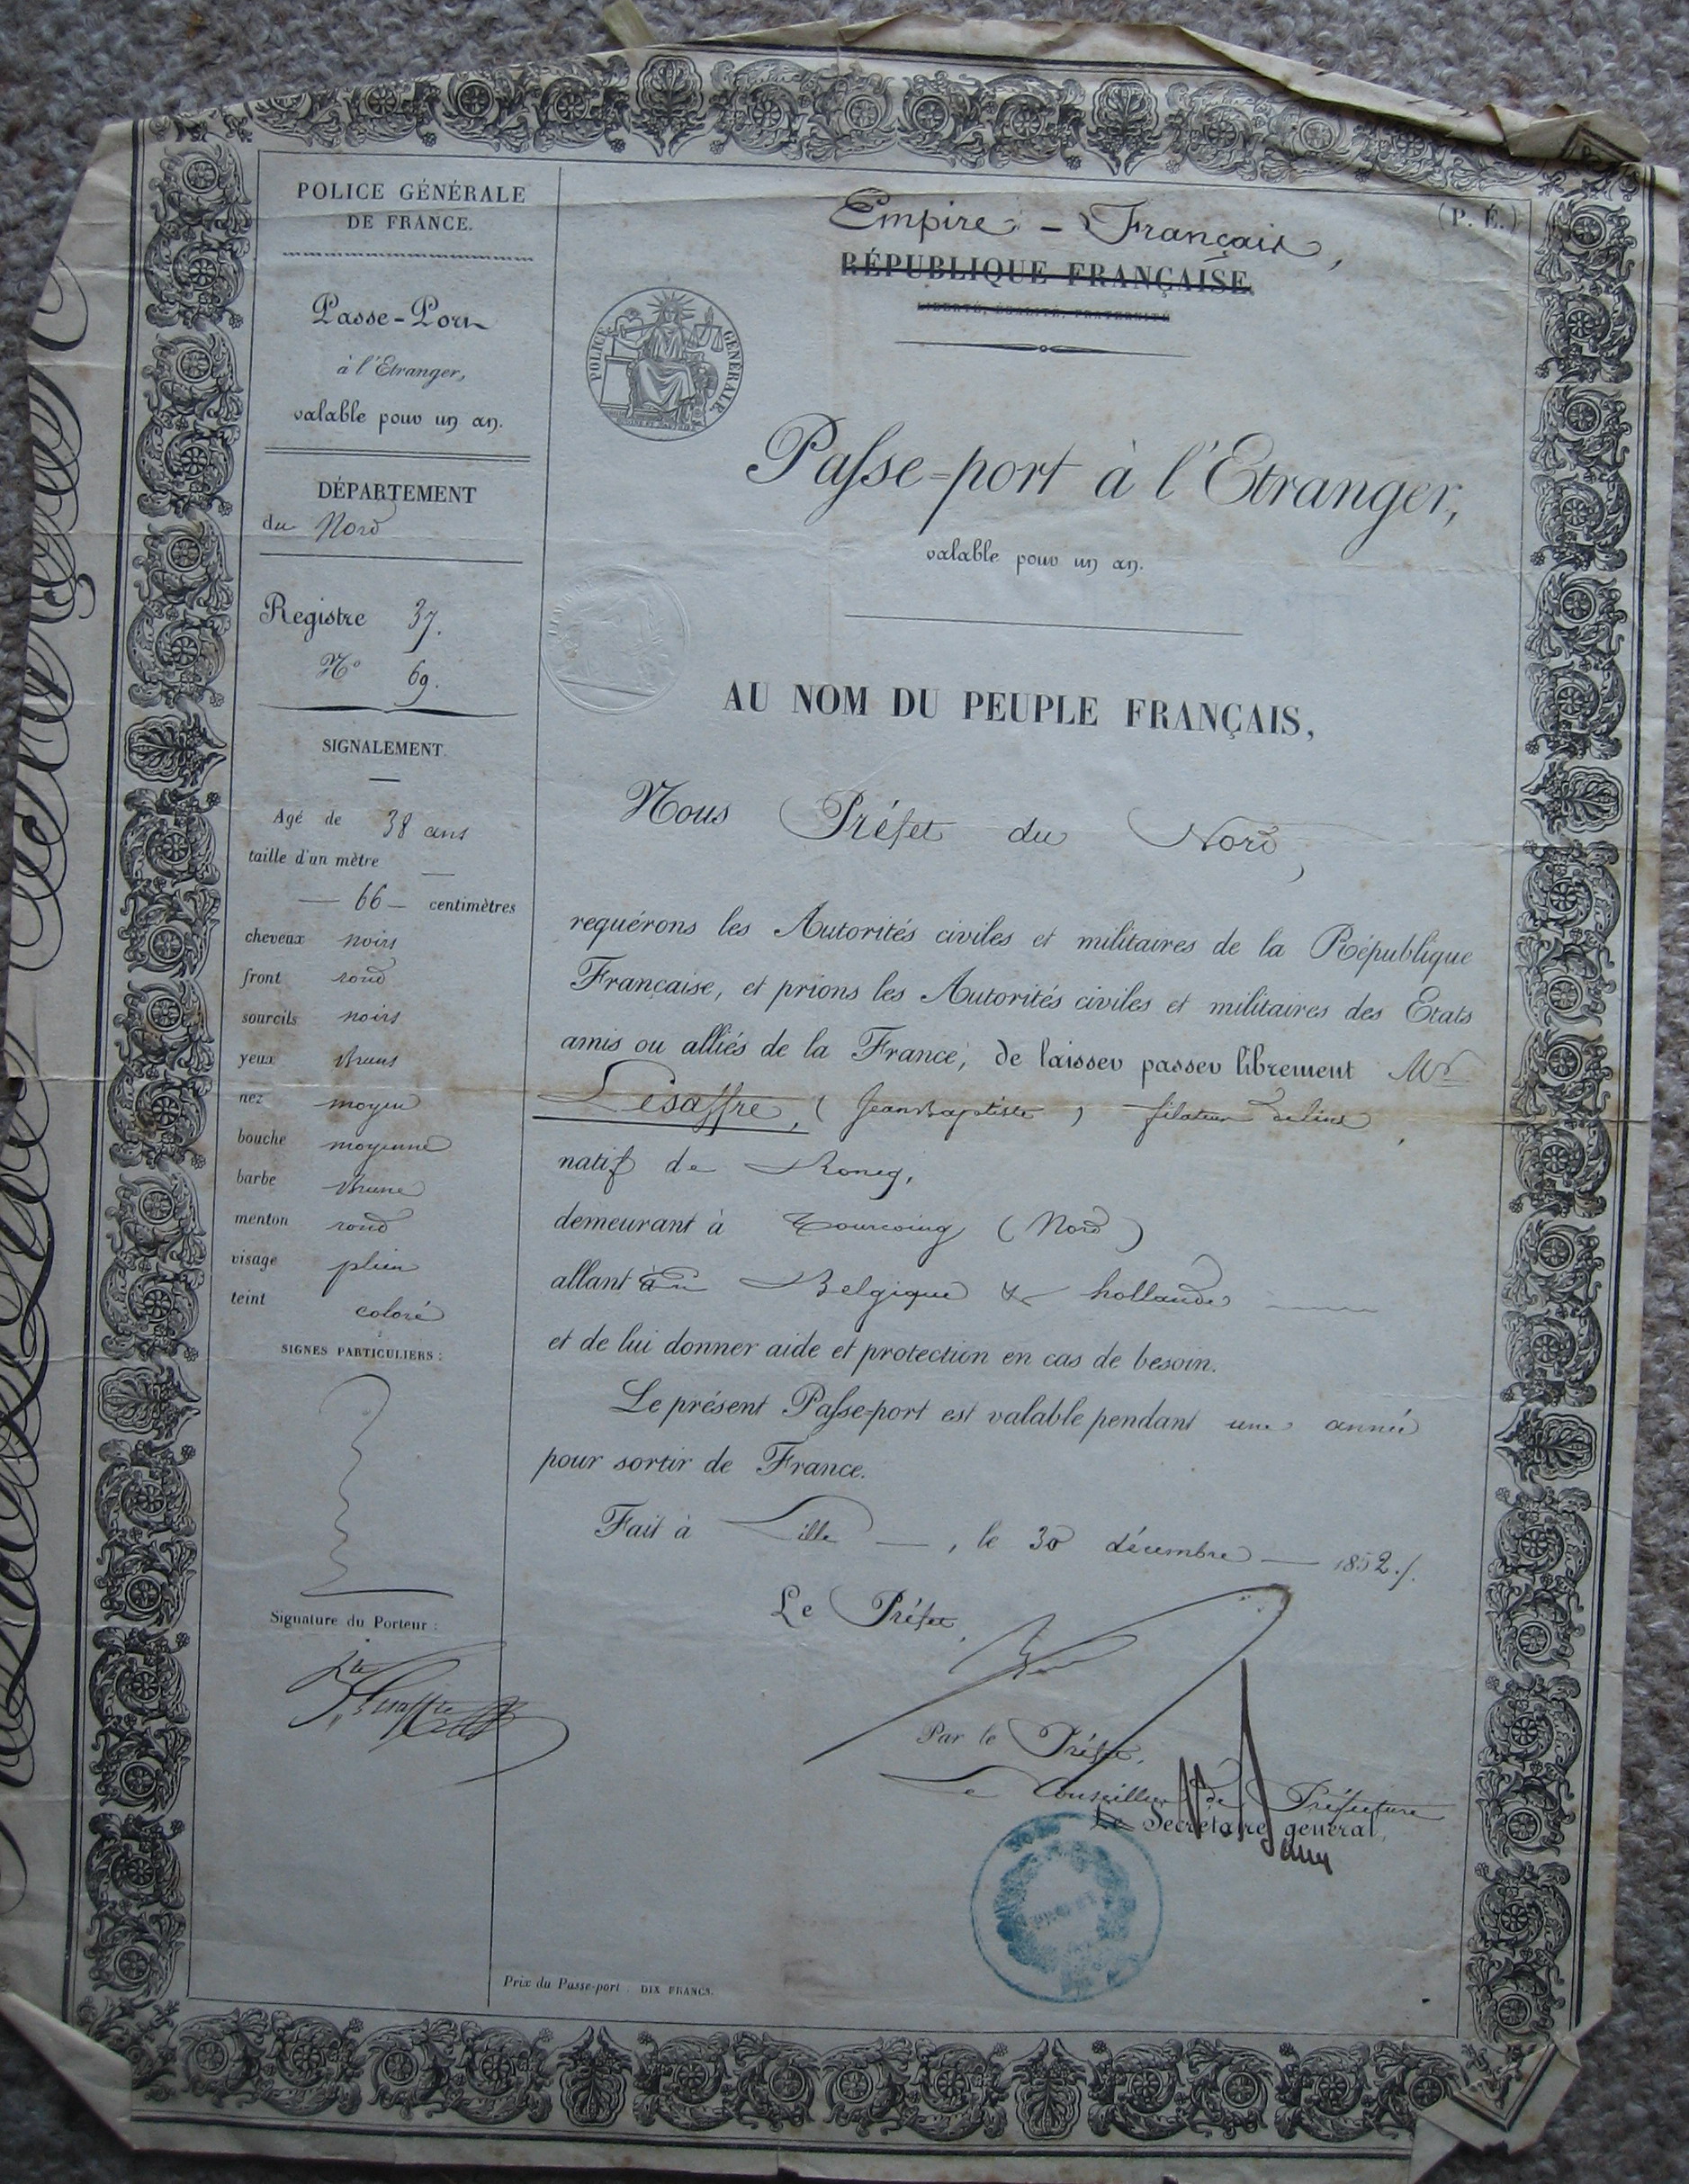 POLICE GÉNÉRALE
DE FRANCE.
Passe-Port
à l'Etranger,
valable pour un an.
DÉPARTEMENT
du Nord
Registre 37.
N° 69.
SIGNALEMENT.
Agé de 38 ans
taille d'un mètre
66 centimètres
cheveux noirs
front rond
sourcils noirs
yeux bruns
nez moyen
bouche moyenne
barbe brune
menton rond
visage plein
teint coloré
SIGNES PARTICULIERS :
Signature du Porteur :
(P. É.)
Empire - Français,
RÉPUBLIQUE FRANÇAISE.
LIBERTÉ, ÉGALITÉ, FRATERNITÉ
POLICE GÉNÉRALE.
Passe-port à l'Etranger,
valable pour un an.
AU NOM DU PEUPLE FRANÇAIS,
Nous Préfet du Nord,
requérons les Autorités civiles et militaires de la République
Française, et prions les Autorités civiles et militaires des Etats
amis ou alliés de la France, de laisser passer librement Mr
Lesaffre, (Jean Baptiste) filateur de lin,
natif de Roncq,
demeurant à Tourcoing (Nord)
allant en Belgique & hollande
et de lui donner aide et protection en cas de besoin.
Le présent Passe-port est valable pendant une année
pour sortir de France.
Fait à Lille, le 30 décembre 1852./.
Le Préfet,
Par le Préfet,
Le Conseiller de Préfecture
Le Secrétaire général,
Prix du Passe-port : DIX FRANCS.